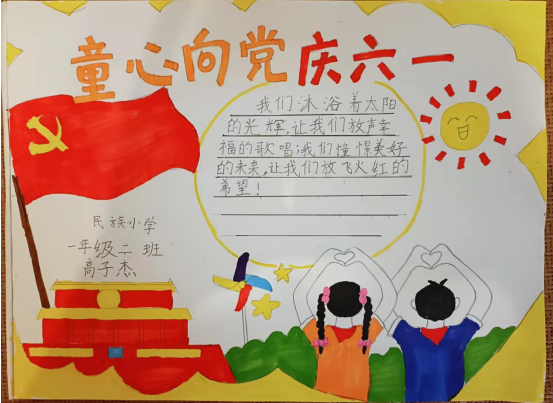 童心向党庆六一
我们沐浴着太阳
的光辉,让我们放声幸
福的歌唱;我们憧憬美好
的未来,让我们放飞火红的
希望!
民族小学
一年级二班
高子杰